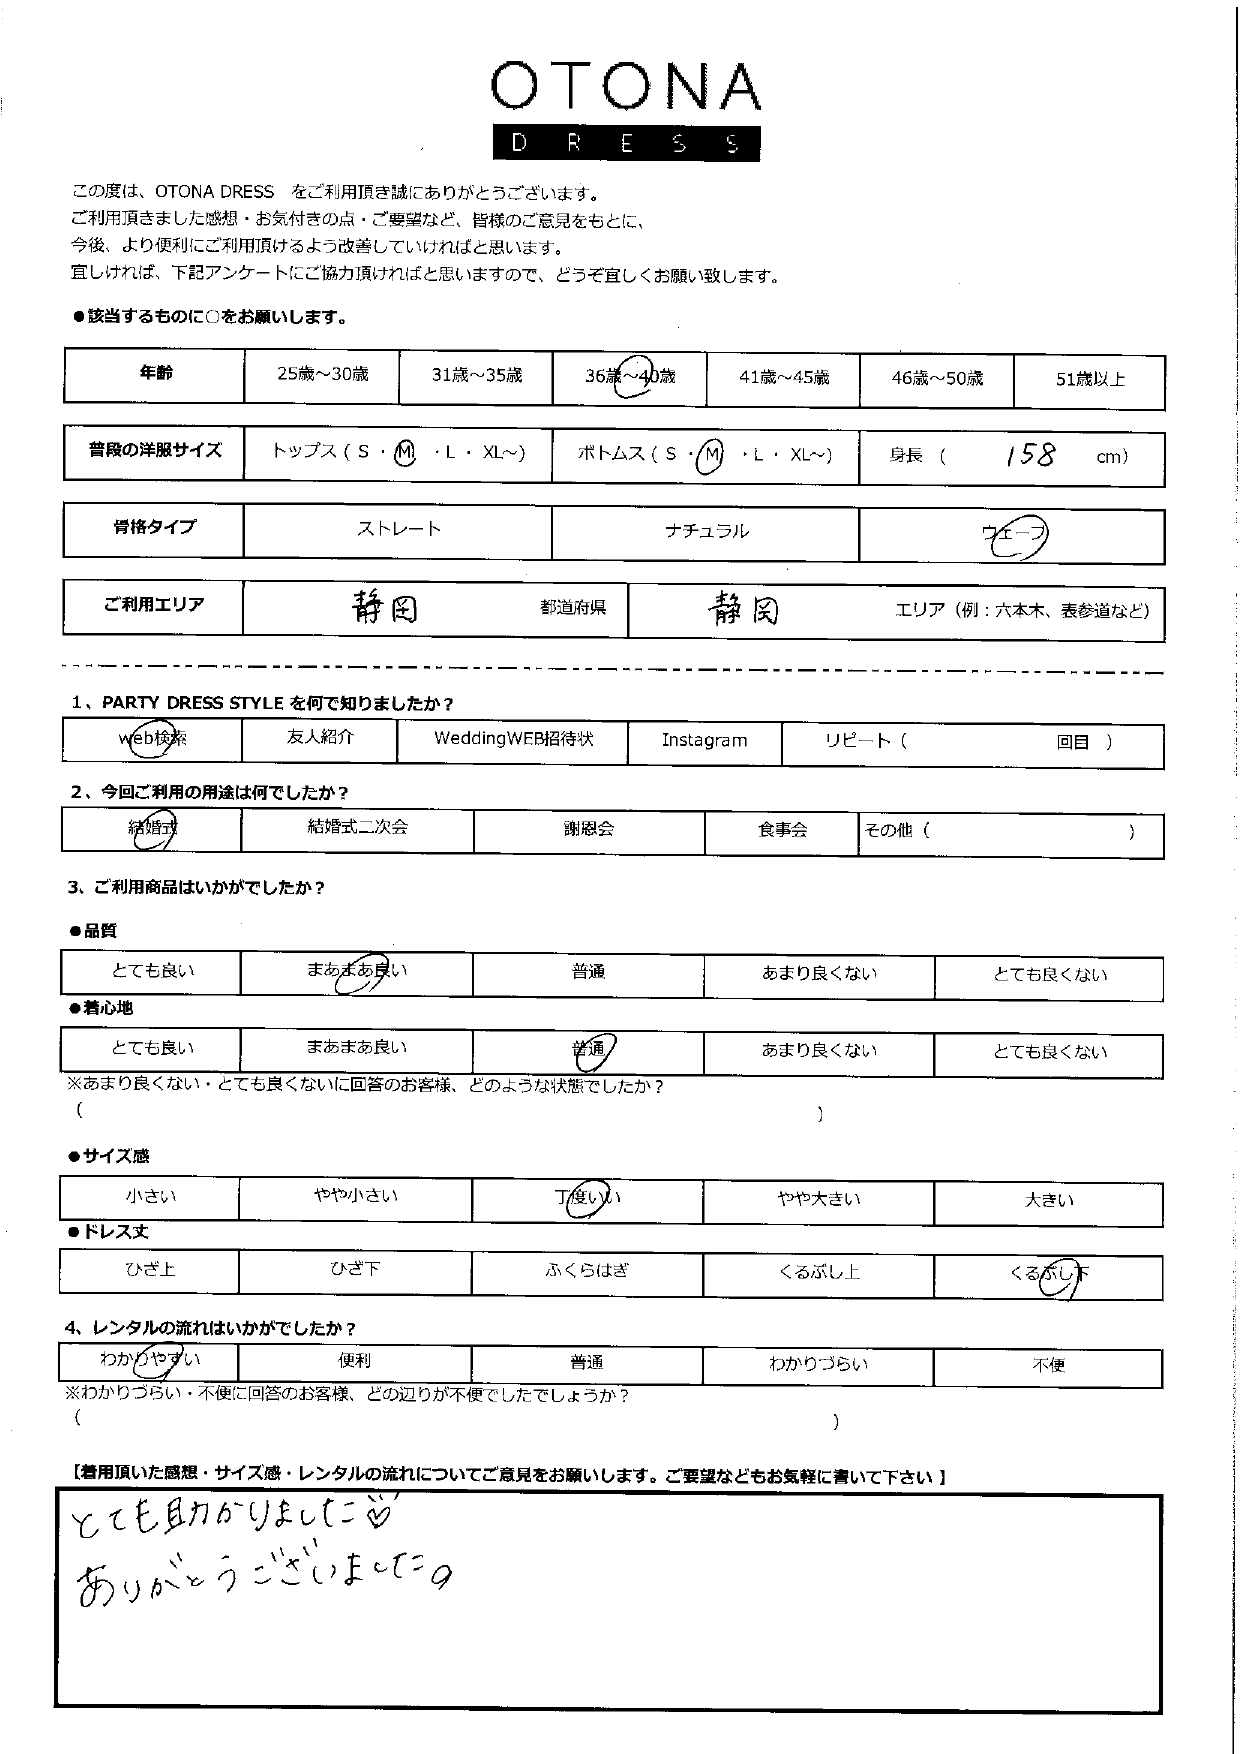 OTONA
DRESS
この度は、OTONA DRESS をご利用頂き誠にありがとうございます。
ご利用頂きました感想・お気付きの点・ご要望など、皆様のご意見をもとに、
今後、より便利にご利用頂けるよう改善していければと思います。
宜しければ、下記アンケートにご協力頂ければと思いますので、どうぞ宜しくお願い致します。
●該当するものに○をお願いします。
年齢 25歳～30歳 31歳～35歳 36歳～40歳 41歳～45歳 46歳～50歳 51歳以上
普段の洋服サイズ トップス（ S ・ M ・ L ・ XL～） ボトムス（ S ・ M ・ L ・ XL～） 身長（ 158 cm）
骨格タイプ ストレート ナチュラル ウェーブ
ご利用エリア 静岡 都道府県 静岡 エリア（例：六本木、表参道など）
1、PARTY DRESS STYLE を何で知りましたか？
web検索 友人紹介 WeddingWEB招待状 Instagram リピート（ 回目 ）
2、今回ご利用の用途は何でしたか？
結婚式 結婚式二次会 謝恩会 食事会 その他（ ）
3、ご利用商品はいかがでしたか？
●品質
とても良い まあまあ良い 普通 あまり良くない とても良くない
●着心地
とても良い まあまあ良い 普通 あまり良くない とても良くない
※あまり良くない・とても良くないに回答のお客様、どのような状態でしたか？
（ ）
●サイズ感
小さい やや小さい 丁度いい やや大きい 大きい
●ドレス丈
ひざ上 ひざ下 ふくらはぎ くるぶし上 くるぶし下
4、レンタルの流れはいかがでしたか？
わかりやすい 便利 普通 わかりづらい 不便
※わかりづらい・不便に回答のお客様、どの辺りが不便でしたでしょうか？
（ ）
【着用頂いた感想・サイズ感・レンタルの流れについてご意見をお願いします。ご要望などもお気軽に書いて下さい 】
とても助かりました♡
ありがとうございました。